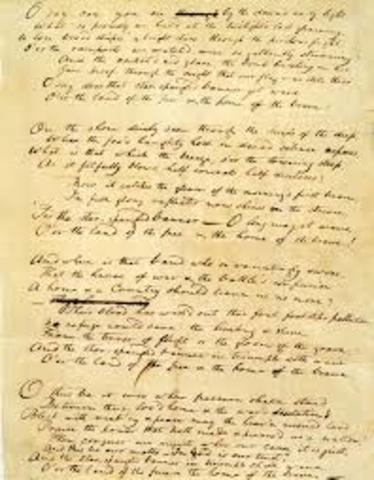 O say can you see by the dawn's early light
What so proudly we hail'd at the twilight's last gleaming,
Whose broad stripes & bright stars through the perilous fight
O'er the ramparts we watch'd were so gallantly streaming?
And the rocket's red glare, the bomb bursting in air,
Gave proof through the night that our flag was still there
O say does that star-spangled banner yet wave
O'er the land of the free & the home of the brave?
On the shore dimly seen through the mists of the deep,
Where the foe's haughty host in dread silence reposes,
What is that which the breeze, o'er the towering steep,
As it fitfully blows, half conceals, half discloses?
Now it catches the gleam of the morning's first beam,
In full glory reflected now shines in the stream,
'Tis the star-spangled banner — O long may it wave
O'er the land of the free & the home of the brave!
And where is that band who so vauntingly swore,
That the havoc of war & the battle's confusion
A home & a Country should leave us no more?
Their blood has wash'd out their foul footstep's pollution
No refuge could save the hireling & slave
From the terror of flight or the gloom of the grave,
And the star-spangled banner in triumph doth wave
O'er the land of the free & the home of the brave.
O thus be it ever when freemen shall stand
Between their lov'd home & the war's desolation!
Blest with vict'ry & peace may the heav'n rescued land
Praise the power that hath made & preserv'd us a nation!
Then conquer we must, when our cause it is just,
And this be our motto — In God is our trust,
And the star-spangled banner in triumph shall wave
O'er the land of the free & the home of the brave.